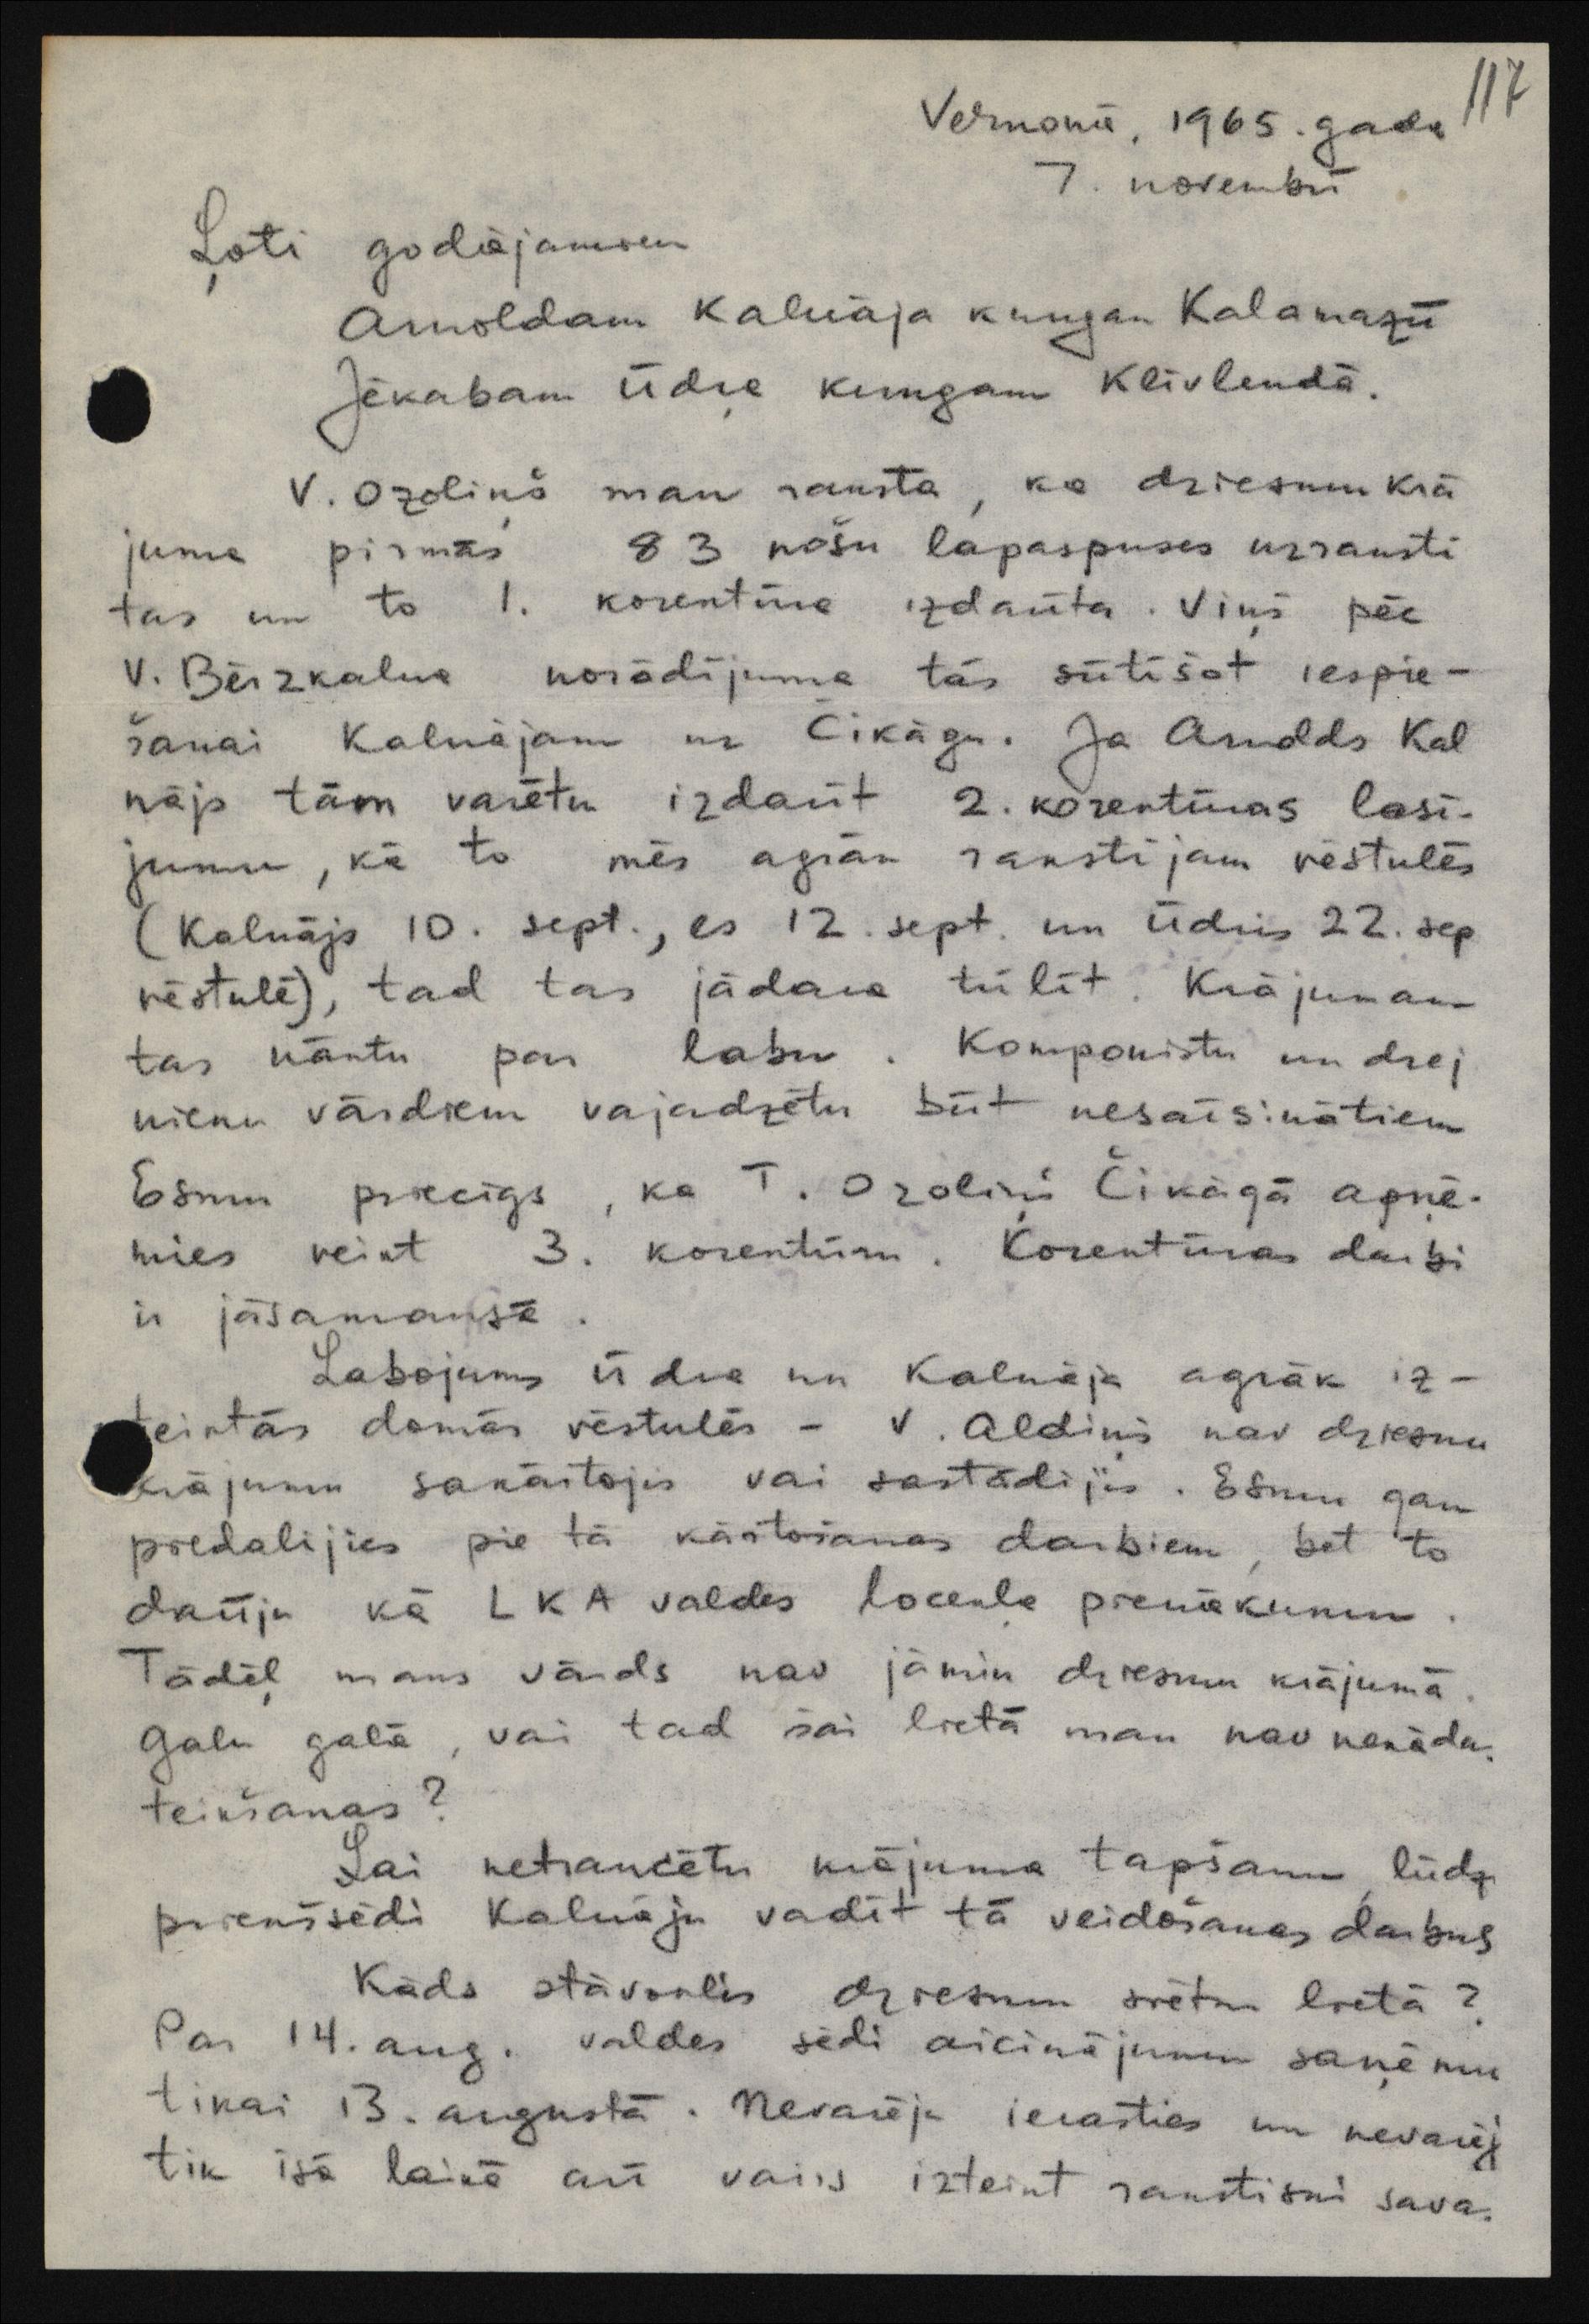 117
Vermonā, 1965. gada
7. novembrī
Ļoti godājamiem
Arnoldam Kalnāja kungam Kalamazū
Jēkabam Ūdŗa kungam Klīvlendā.
V. Ozoliņš man raksta, ka dziesmu krā
juma pirmās 83 nošu lapaspuses uzraksti
tas un to 1. korektūra izdarīta. Viņš pēc
V. Bērzkalna norādījuma tās sūtīšot iespie-
šanai Kalnājam uz Čikāgu. Ja Arnolds Kal
nājs tām varētu izdarīt 2. korektūras lasī-
jumu, kā to mēs agrāk rakstījām vēstulēs
(Kalnājs 10. sept., es 12. sept. un Ūdris 22. sep
vēstulē), tad tas jādara tūlīt. Krājumam
tas nāktu par labu. Komponistu un dzej
nieku vārdiem vajadzētu būt nesaīsinātiem
Esmu priecīgs, ka T. Ozoliņš Čikāgā apņē-
mies veikt 3. korektūru. Korektūras darbi
ir jāsamaksā.
Labojums Ūdra un Kalnāja agrāk iz-
teiktās domās vēstulēs - V. Aldiņš nav dziesmu
krājumu sakārtojis vai sastādījis. Esmu gan
piedalījies pie tā kārtošanas darbiem, bet to
darīju kā LKA valdes locekļa pienākumu.
Tādēļ mans vārds nav jāmin dziesmu krājumā.
Galu galā, vai tad šai lietā man nav nekāda
teikšanas?
Lai netraucētu krājuma tapšanu, lūdzu
priekšsēdi Kalnāju vadīt tā veidošanas darbus
Kāds stāvoklis dziesmu svētku lietā?
Par 14. aug. valdes sēdi aicinājumu saņēmu
tikai 13. augustā. Nevarēju ierasties un nevarēj
tik īsā laikā arī vairs izteikt rakstiski sava